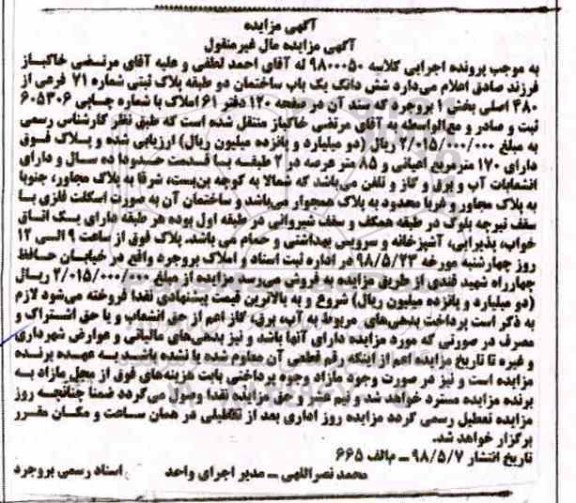 آگهی مزایده
آگهی مزایده مال غیرمنقول
به موجب پرونده اجرایی کلاسه ۹۸۰۰۰۵۰ له آقای احمد لطفی و علیه آقای مرتضی خاکباز
فرزند صادق اعلام می‌دارد شش دانگ یک باب ساختمان دو طبقه پلاک ثبتی شماره ۷۱ فرعی از
۴۸۰ اصلی بخش ۱ بروجرد که سند آن در صفحه ۱۲۰ دفتر ۶۱ املاک با شماره چاپی ۶۰۵۳۰۶
ثبت و صادر و مع‌الواسطه به آقای مرتضی خاکباز منتقل شده است که طبق نظر کارشناس رسمی
به مبلغ ۲/۰۱۵/۰۰۰/۰۰۰ ریال (دو میلیارد و پانزده میلیون ریال) ارزیابی شده و پلاک فوق
دارای ۱۷۰ مترمربع اعیانی و ۸۵ متر عرصه در ۲ طبقه با قدمت حدودا ده سال و دارای
انشعابات آب و برق و گاز و تلفن می‌باشد که شمالا به کوچه بن‌بست، شرقا به پلاک مجاور، جنوبا
به پلاک مجاور و غربا محدود به پلاک همجوار می‌باشد و ساختمان آن به صورت اسکلت فلزی با
سقف تیرچه بلوک در طبقه همکف و سقف شیروانی در طبقه اول بوده هر طبقه دارای یک اتاق
خواب، پذیرایی، آشپزخانه و سرویس بهداشتی و حمام می باشد. پلاک فوق از ساعت ۹ الی ۱۲
روز چهارشنبه مورخه ۹۸/۵/۲۳ در اداره ثبت اسناد و املاک بروجرد واقع در خیابان حافظ
چهارراه شهید قندی از طریق مزایده به فروش می‌رسد مزایده از مبلغ ۲/۰۱۵/۰۰۰/۰۰۰ ریال
(دو میلیارد و پانزده میلیون ریال) شروع و به بالاترین قیمت پیشنهادی نقدا فروخته می‌شود لازم
به ذکر است پرداخت بدهی‌های مربوط به آب، برق، گاز اعم از حق انشعاب و یا حق اشتراک و
مصرف در صورتی که مورد مزایده دارای آنها باشد و نیز بدهی‌های مالیاتی و عوارض شهرداری
و غیره تا تاریخ مزایده اعم از اینکه رقم قطعی آن معلوم شده یا نشده باشد به عهده برنده
مزایده است و نیز در صورت وجود مازاد وجوه پرداختی بابت هزینه‌های فوق از محل مازاد به
برنده مزایده مسترد خواهد شد و نیم عشر و حق مزایده نقدا وصول می‌گردد ضمنا چنانچه روز
مزایده تعطیل رسمی گردد مزایده روز اداری بعد از تعطیلی در همان ساعت و مکان مقرر
برگزار خواهد شد.
تاریخ انتشار ۹۸/۵/۷ ــ م/الف ۶۶۵
محمد نصراللهی ــ مدیر اجرای واحد اسناد رسمی بروجرد